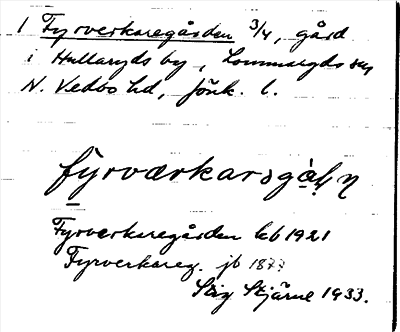 1 Fyrverkaregården 3/4, gård
i Hullaryds by, Lommaryds sn
N. Vedbo hd, Jönk. l.
fyrværkarəgå
Fyrverkaregården kb 1921
Fyrverkareg. jb 1877
Stig Stjärne 1933.